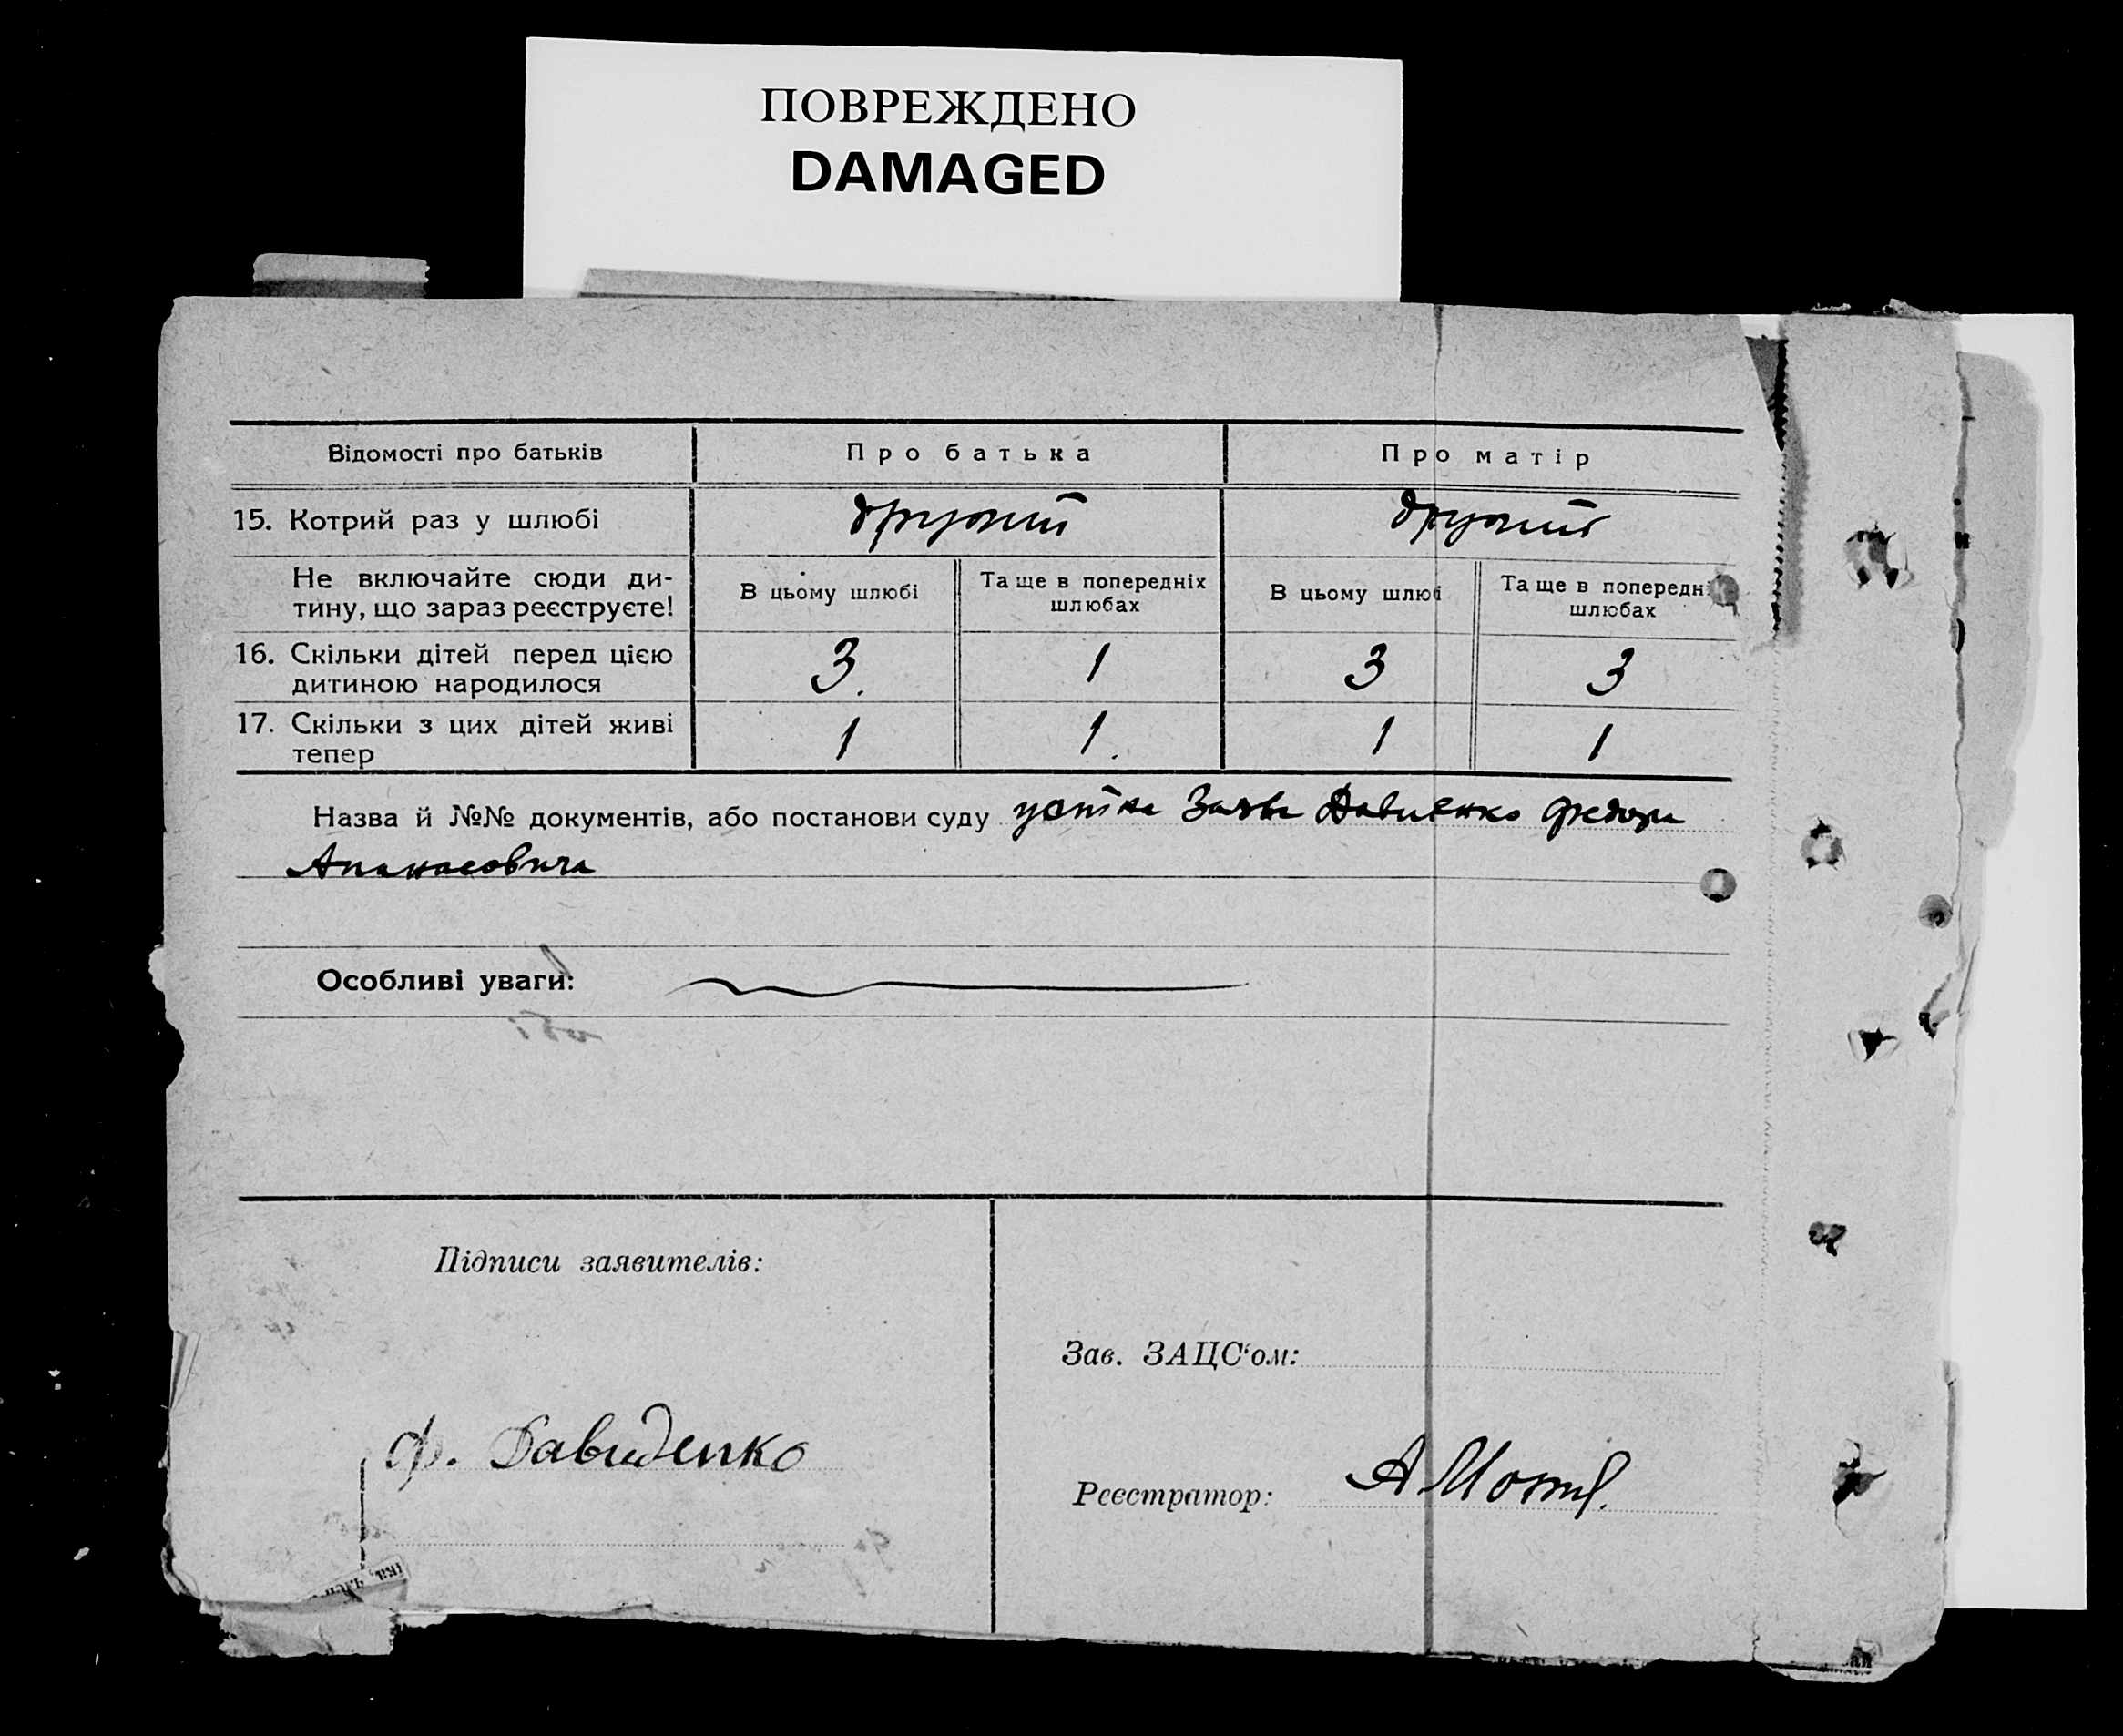 ПОВРЕЖДЕНО
DAMAGED
Відомості про батьків
Про батька
Про матір
15. Котрий раз у шлюбі
другий
другий
Не включайте сюди ди-
тину, що зараз реєструєте!
В цьому шлюбі
Та ще в попередніх
шлюбах
В цьому шлюбі
Та ще в попередні
шлюбах
16. Скільки дітей перед цією
дитиною народилося
3.
1
3
3
17. Скільки з цих дітей живі
тепер
1
1.
1
1
Назва й №№ документів, або постанови суду устна Заява Давиденко Федора
Апанасовича
Особливі уваги:
Підписи заявителів:
Зав. ЗАЦС‘ом:
Ф. Давиденко
Реєстратор: